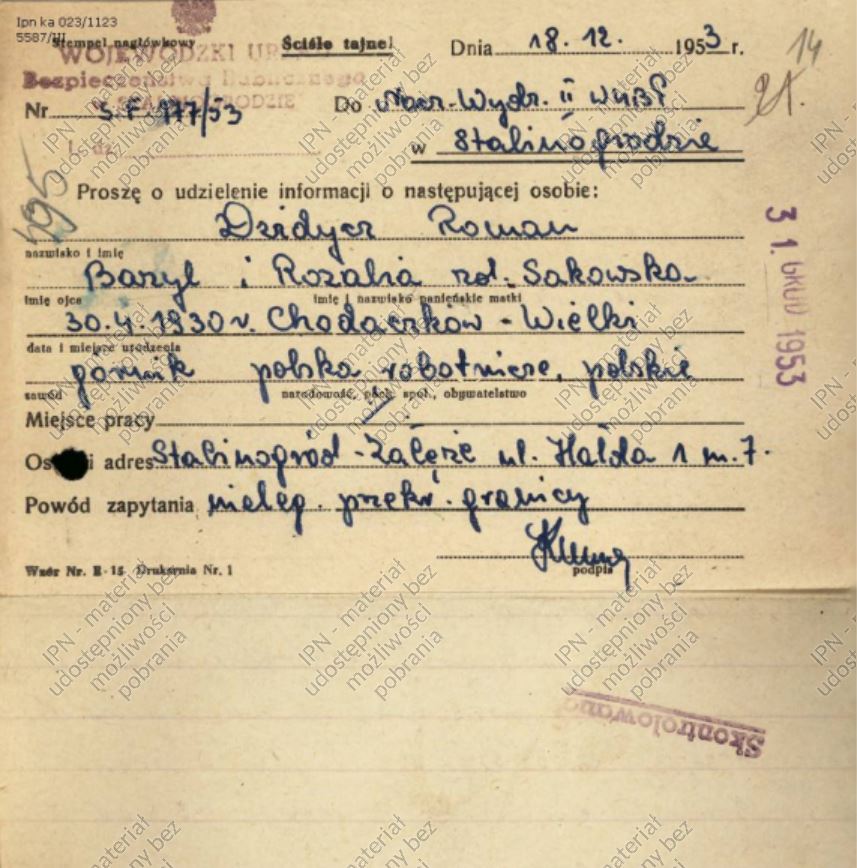 Ipn ka 023/1123
5587/III
Stempel nagłówkowy
WOJEWÓDZKI UR
Bezpieczeństwa Publicznego
Ściśle tajne!
Dnia 18. 12. 1953 r.
14
21.
Nr S.F. 177/53
Do Nacz. Wydz. II WUBP
w Stalinogrodzie
495
Proszę o udzielenie informacji o następującej osobie:
Dzidycz Roman
nazwisko i imię
Bazyl i Rozalia zd. Sakowska
imię ojca imię i nazwisko panieńskie matki
30.4.1930 r. Chodaczków-Wielki
data i miejsce urodzenia
górnik polska robotnicze, polskie
zawód narodowość, poch. społ., obywatelstwo
Miejsce pracy
Os i adres Stalinogród-Załęże ul. Hałda 1 m. 7.
Powód zapytania nieleg. przekr. granicy
podpis
Wzór Nr. E-15 Drukarnia Nr. 1
31. GRUD 1953
Skontrolowano
IPN - materiał
udostępniony bez
możliwości
pobrania